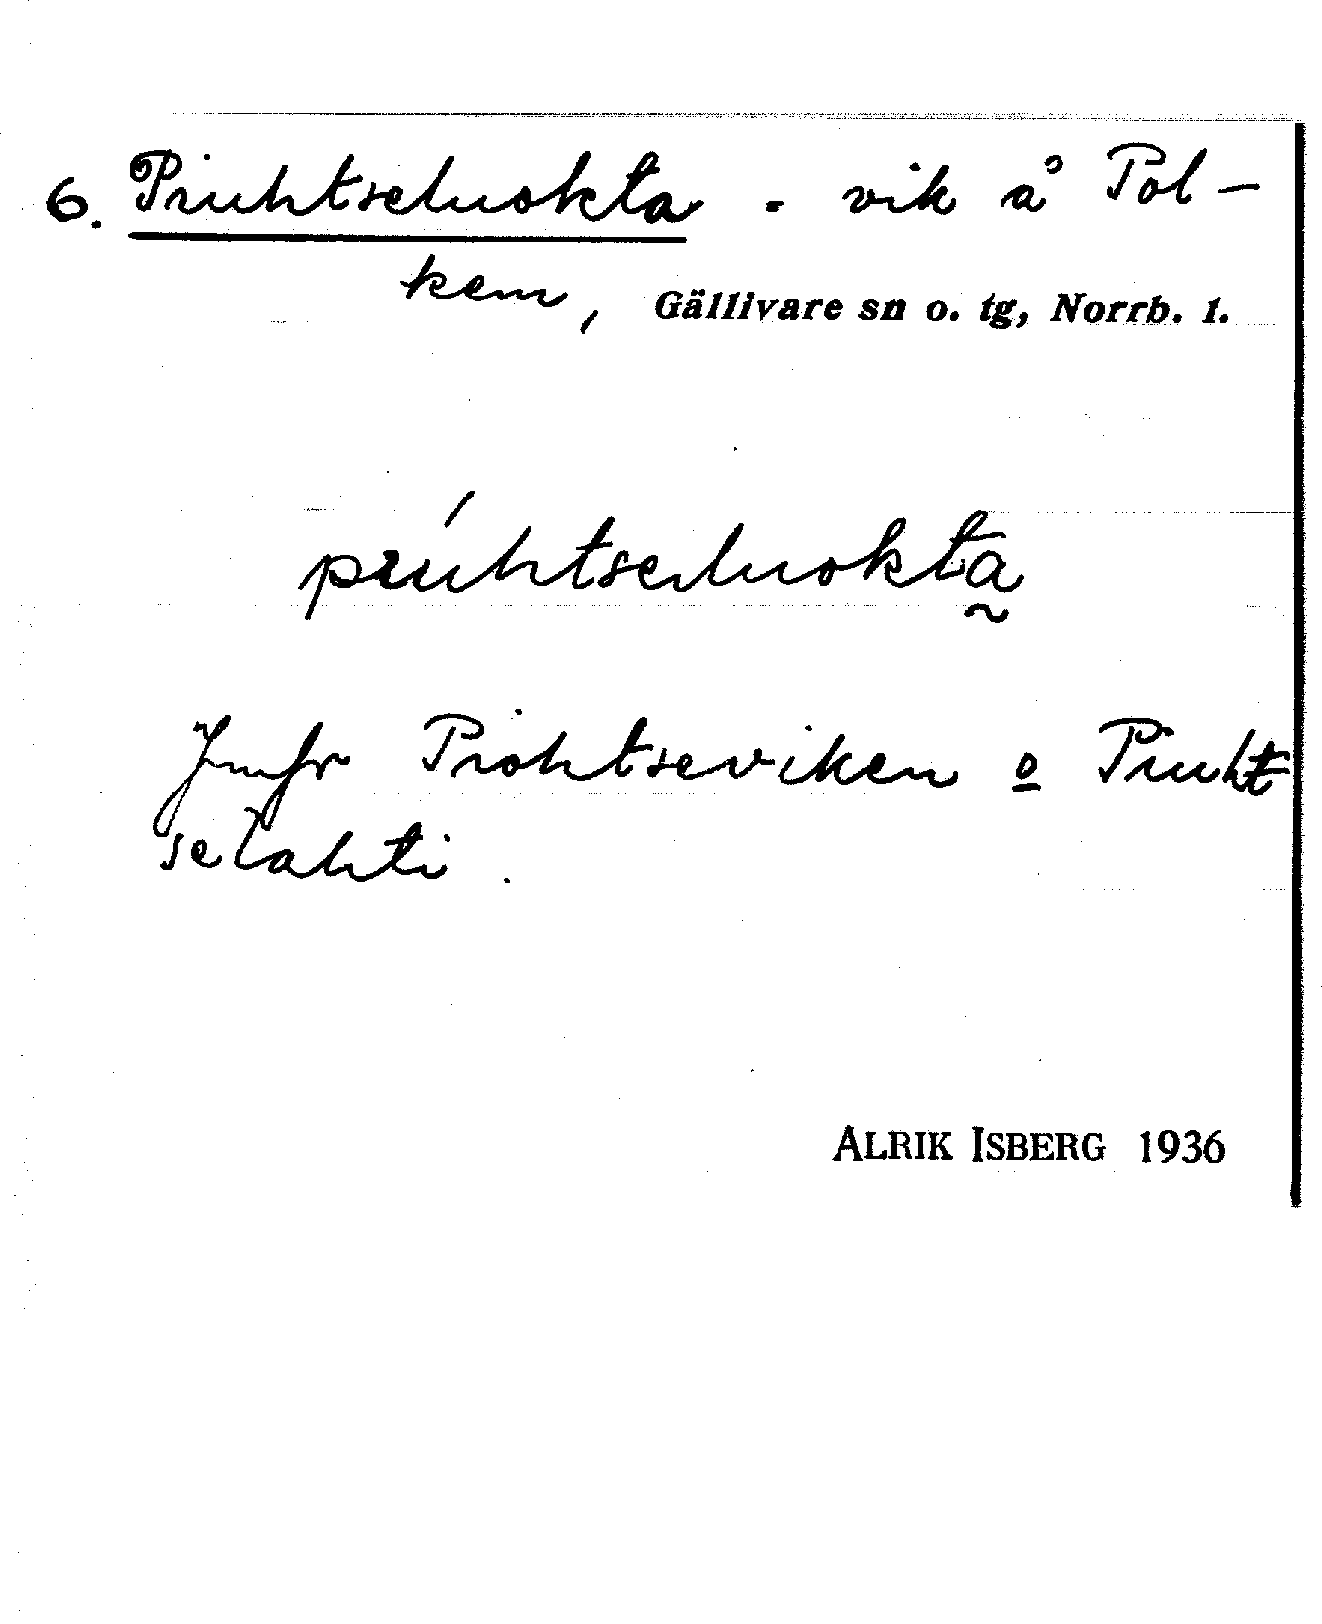 6. Piuhtseluokta - vik å Pol-
kem, Gällivare sn o. tg, Norrb. l.
pıúhtseluokta̰
Jmfr Piohtseviken o Piuht
selahti.
ALRIK ISBERG 1936